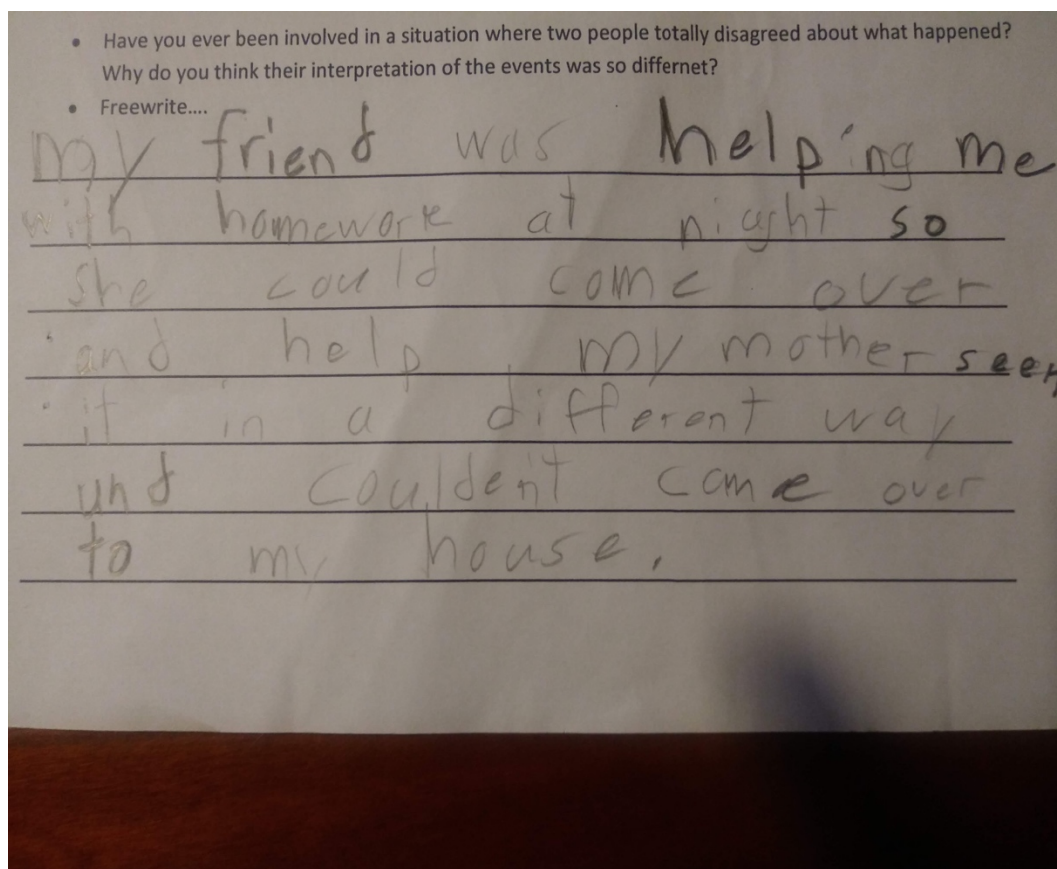 • Have you ever been involved in a situation where two people totally disagreed about what happened?
Why do you think their interpretation of the events was so differnet?
• Freewrite....
my friend was helping me
with homework at night so
she could come over
and help my mother seen
it in a different way
and couldent come over
to my house.